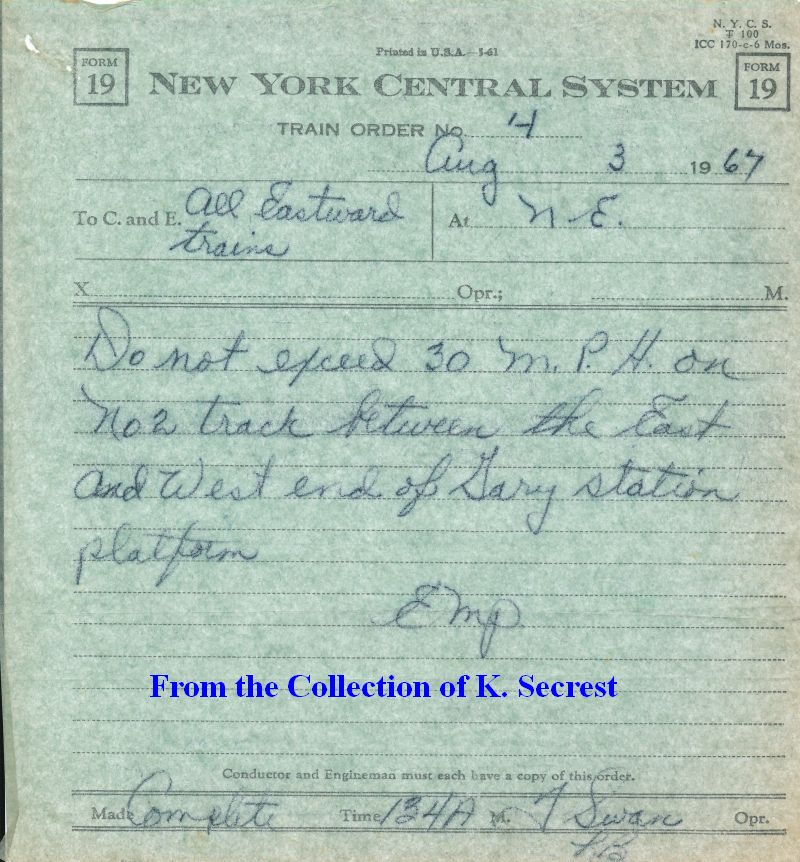 N. Y. C. S.
T 100
ICC 170-c-6 Mos.
Printed in U.S.A.—5-61
FORM
19
NEW YORK CENTRAL SYSTEM
FORM
19
TRAIN ORDER No. 4
Aug 3 1967
To C. and E. All Eastward
trains
At N. E.
X Opr.; M.
Do not exceed 30 M. P. H. on
No 2 track between the East
and West end of Gary station
platform
EMP
From the Collection of K. Secrest
Conductor and Engineman must each have a copy of this order.
Made Complete Time 134A M. Swan Opr.